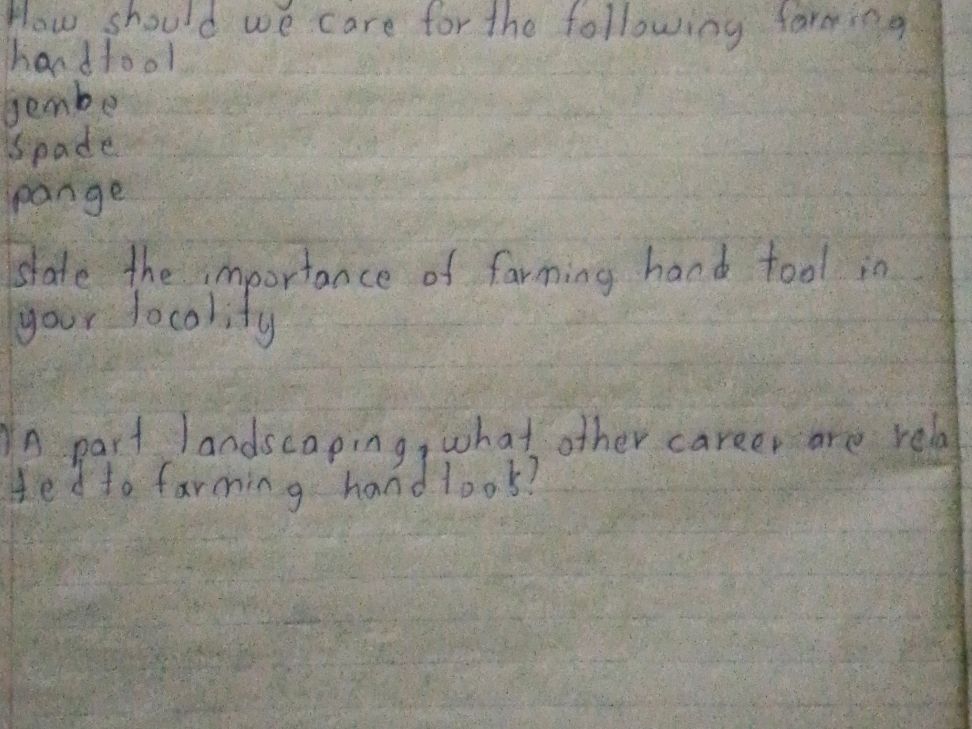 How should we care for the following farming
handtool
jembe
spade
pange
state the importance of farming hand tool in
your locality
In part landscaping, what other career are rela
ted to farming hand tools?